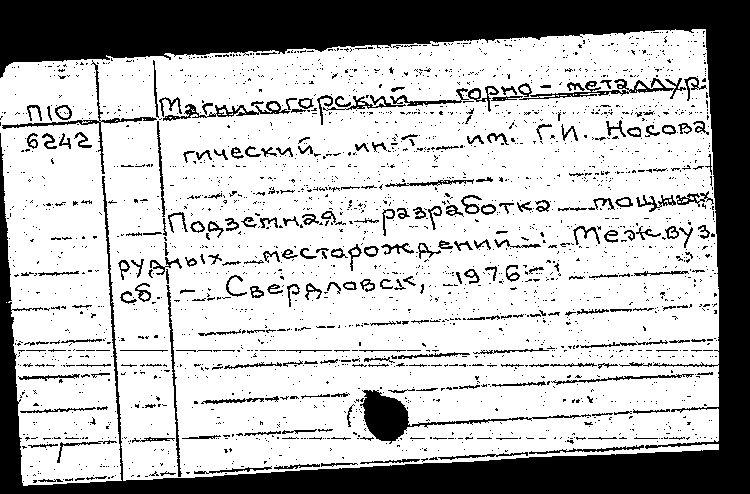 П10 Магнитогорский горно-металлур-
6242 гический ин-т им. Г.И. Носова
Подземная разработка мощных
рудных месторождений: Межвуз.
сб. - Свердловск, 1976-